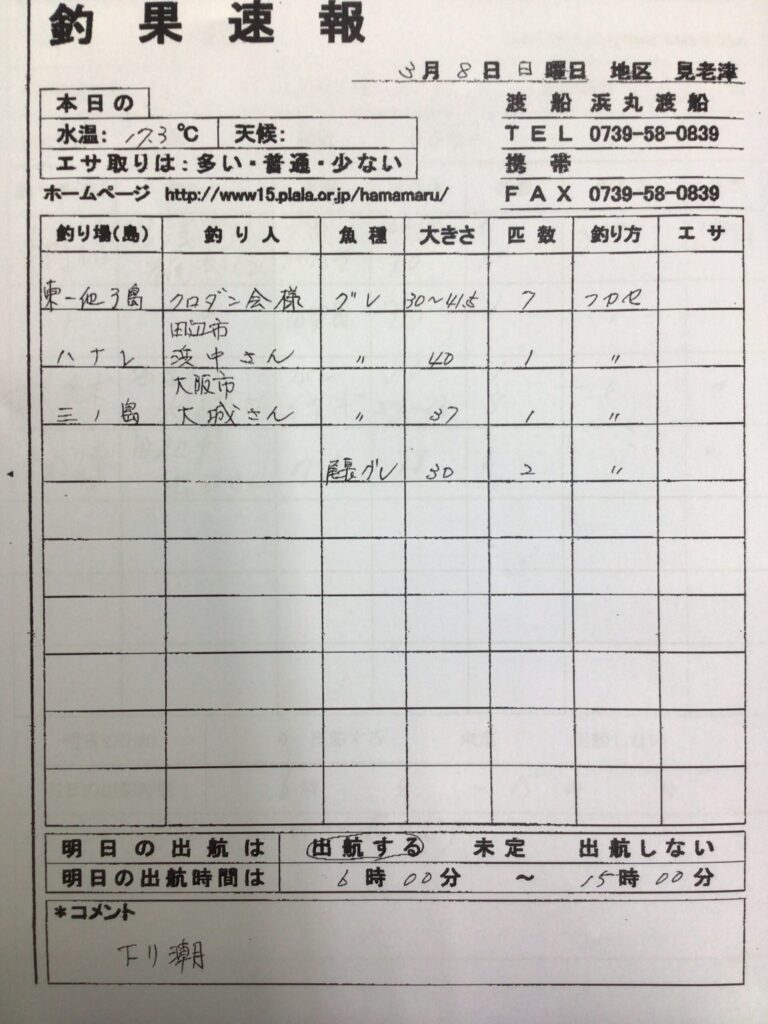 釣果速報
3月8日 日曜日 地区 見老津
本日の
水温: 17.3℃ 天候:
エサ取りは:多い・普通・少ない
渡船 浜丸渡船
TEL 0739-58-0839
携帯
FAX 0739-58-0839
ホームページ http://www15.plala.or.jp/hamamaru/
釣り場(島) 釣り人 魚種 大きさ 匹数 釣り方 エサ
東一他3島 クロダン会様 グレ 30〜41.5 7 フカセ
田辺市
ハナレ 浜中さん 〃 40 1 〃
大阪市
三ノ島 大城さん 〃 37 1 〃
尾長グレ 30 2 〃
明日の出航は 出航する 未定 出航しない
明日の出航時間は 6時00分 〜 15時00分
*コメント
下り潮